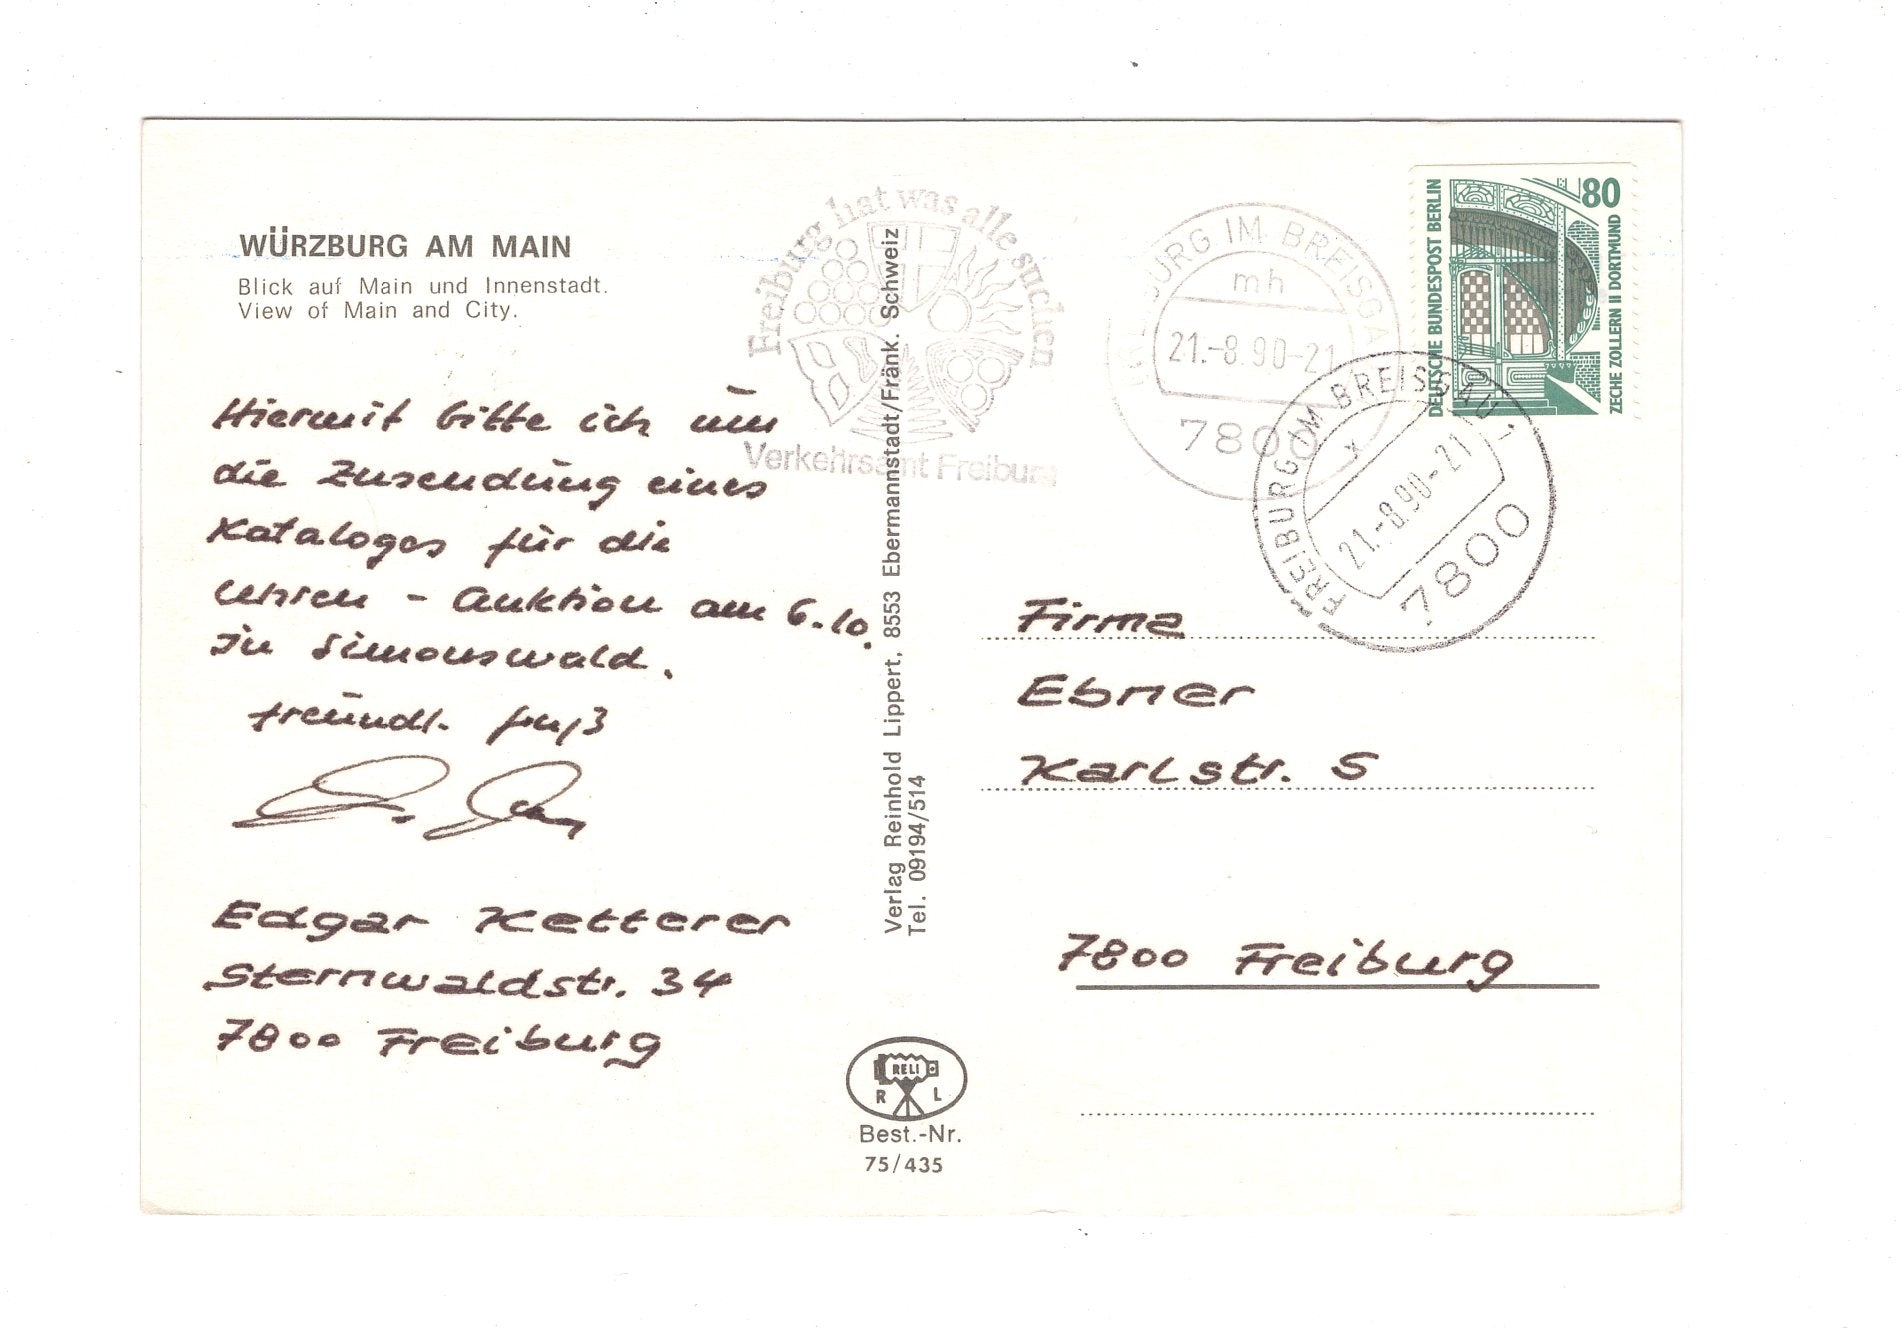 WÜRZBURG AM MAIN
Blick auf Main und Innenstadt.
View of Main and City.
Hiermit bitte ich um
die Zusendung eines
Kataloges für die
Uhren - Auktion am 6.10.
in Simonswald.
freundl. Gruß
Edgar Ketterer
Sternwaldstr. 34
7800 Freiburg
Freiburg hat was alle suchen
Verkehrsamt Freiburg
Verlag Reinhold Lippert, 8553 Ebermannstadt/Fränk. Schweiz
Tel. 09194/514
RELI
R L
Best.-Nr.
75/435
FREIBURG IM BREISGAU
mh
21.-8.90-21
7800
FREIBURG IM BREISGAU 1
x
21.-8.90-21
7800
DEUTSCHE BUNDESPOST BERLIN
80
ZECHE ZOLLERN II DORTMUND
Firma
Ebner
Karlstr. 5
7800 Freiburg